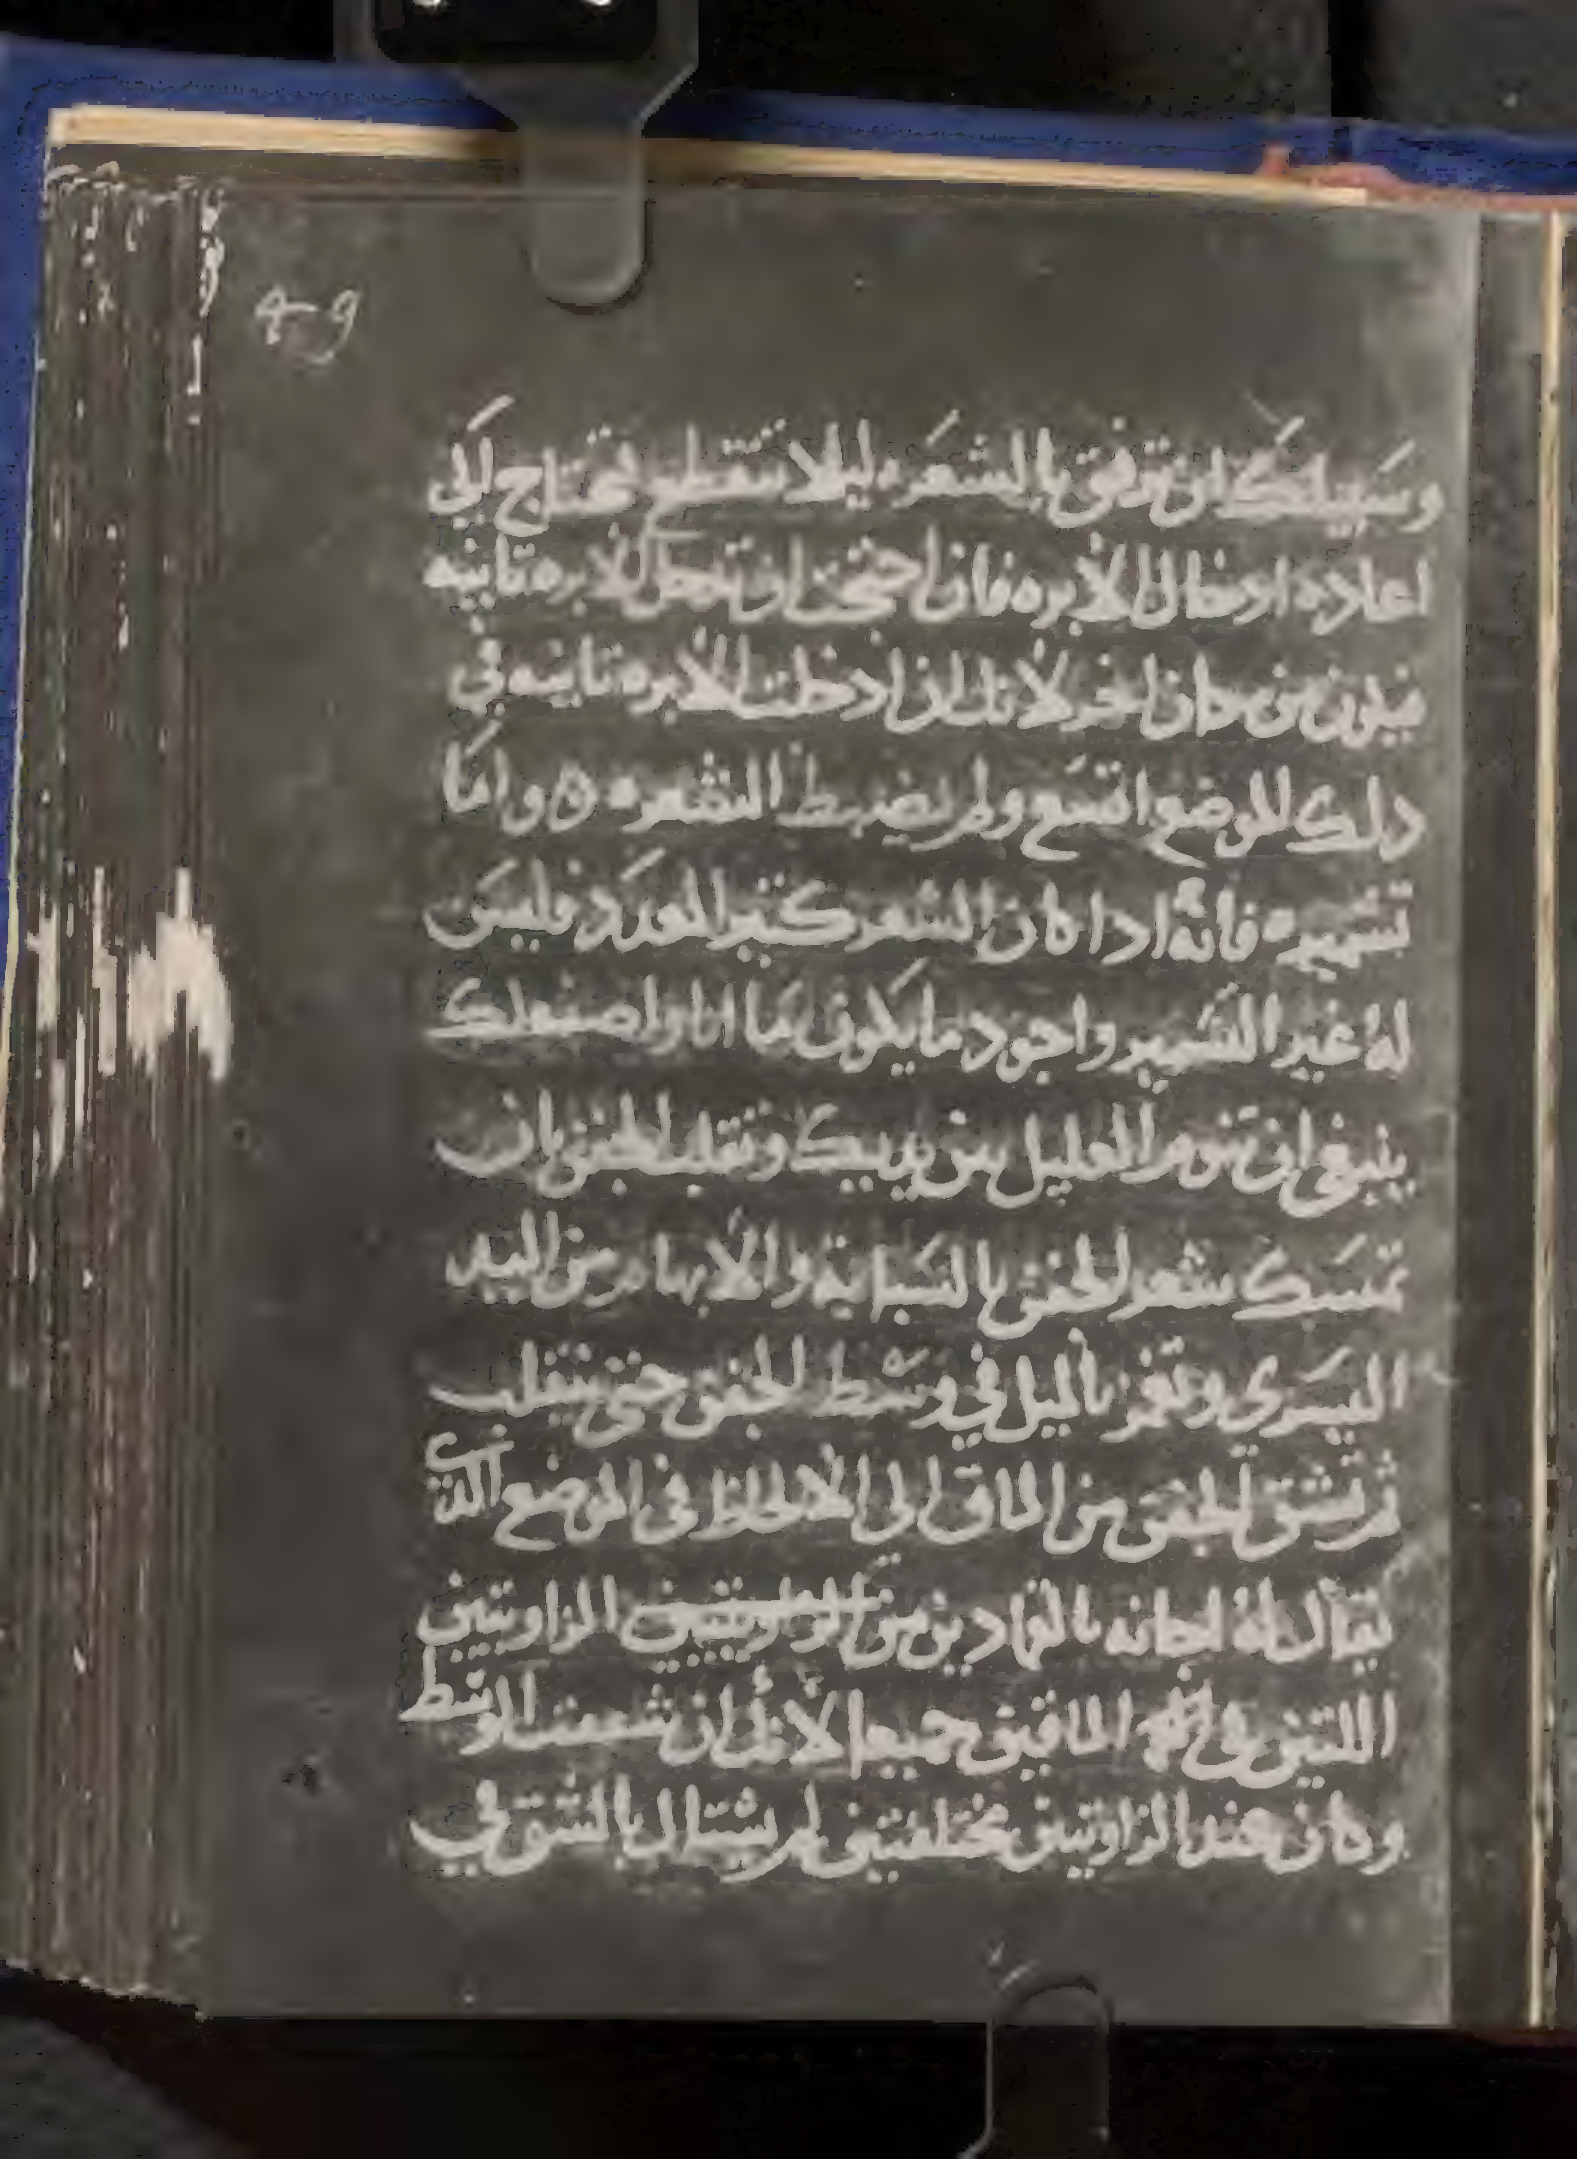 وسبيلك ان ترفق بالشعره ليلا تنقطع فتحتاج الى
اعاده ادخال الأبره فان احتجت ان تدخل الابره تانيه
فيكون من مكان اخر لأنك ان ادخلت الأبره تانيه في
دلك الموضع اتسع ولم يضبط الشعره ه واما
تشميره فانه ادا كان الشعر كتير العدد فليس
له غير التشمير واجود ما يكون ما انا واصفه لك
ينبغي ان تنوم العليل بين يديك وتقلب الجفن بان
تمسك شعر الجفن بالسبابة والابهام من اليد
اليسرى وتغمز بالميل في وسط الجفن حتى ينقلب
ثم تشق الجفن من الماق الى الالحاظ في الموضع الذي
يقال له اجانه بالقمادين من الزاويتين
اللتين في الماقين جميعا لأنك ان شققت الوسط
وكان عند الزاويتين مختلفتين لم يشتال بالشق في